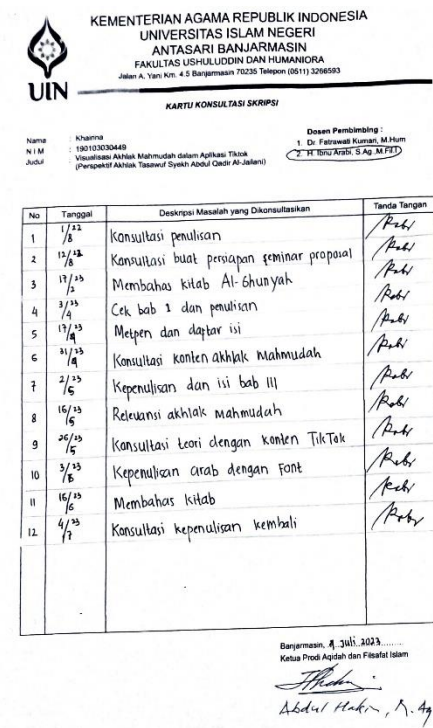 KEMENTERIAN AGAMA REPUBLIK INDONESIA
UNIVERSITAS ISLAM NEGERI
ANTASARI BANJARMASIN
FAKULTAS USHULUDDIN DAN HUMANIORA
Jalan A. Yani Km. 4.5 Banjarmasin 70235 Telepon (0511) 3266593
UIN
KARTU KONSULTASI SKRIPSI
Nama : Khainna
N I M : 190103030449
Judul : Visualisasi Akhlak Mahmudah dalam Aplikasi Tiktok
(Perspektif Akhlak Tasawuf Syekh Abdul Qadir Al-Jailani)
Dosen Pembimbing :
1. Dr. Fatrawati Kumari, M.Hum
2. H. Ibnu Arabi, S.Ag.,M.Fil.I
No Tanggal Deskripsi Masalah yang Dikonsultasikan Tanda Tangan
1 1/22 8 Konsultasi penulisan
2 12/22 8 Konsultasi buat persiapan seminar proposal
3 17/23 2 Membahas kitab Al-Ghunyah
4 3/23 4 Cek bab 1 dan penulisan
5 17/23 4 Metpen dan daftar isi
6 31/23 4 Konsultasi konten akhlak mahmudah
7 2/23 5 Kepenulisan dan isi bab III
8 16/23 5 Relevansi akhlak mahmudah
9 26/23 5 Konsultasi teori dengan konten TikTok
10 3/23 Kepenulisan arab dengan font
11 16/23 6 Membahas kitab
12 4/23 7 Konsultasi kepenulisan kembali
Banjarmasin, Juli 2023
Ketua Prodi Aqidah dan Filsafat Islam
Abdul Hakim, M.Ag